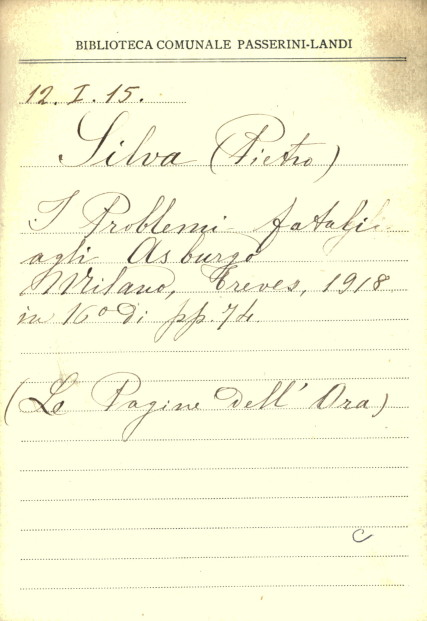 BIBLIOTECA COMUNALE PASSERINI-LANDI
12. I. 15.
Silva (Pietro)
I Problemi fatali
agli Asburgo
Milano, Treves, 1918
in 16º di pp. 74.
(Le Pagine dell' Ora)
C